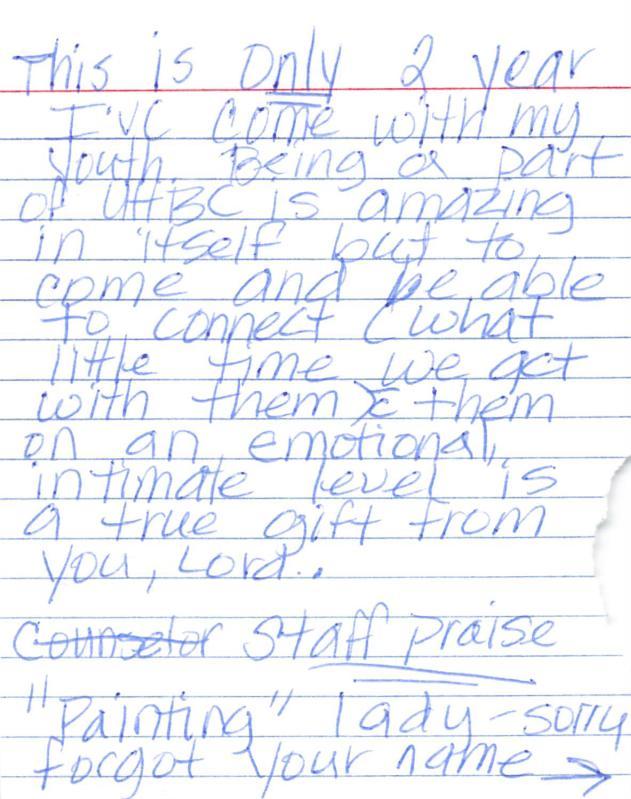 This is only 2 year
I've come with my
youth. Being a part
of UHBC is amazing
in itself but to
come and be able
to connect (what
little time we get
with them) c them
on an emotional,
intimate level is
a true gift from
you, Lord..
Counselor Staff praise
"Painting" lady - sorry
forgot your name →